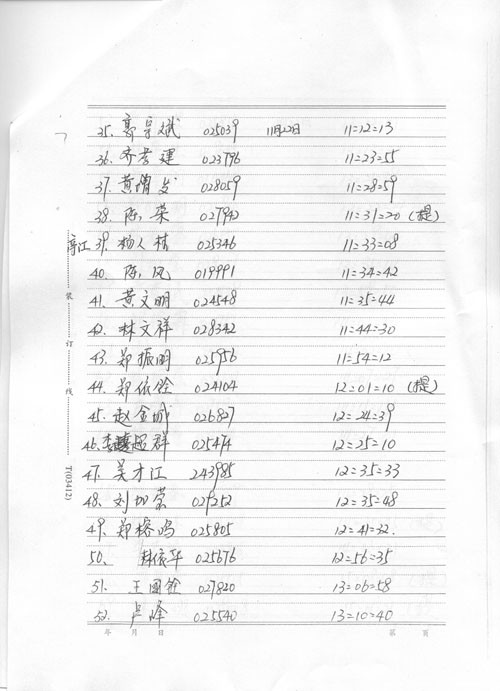 35. 郭宗斌 025039 11月22日 11=12=13
36. 齐孝建 023796 11=23=55
37. 黄增发 028059 11=28=59
38. 陈荣 027942 11=31=20 (提)
39. 杨人桂 025346 11=33=08
40. 陈凤 019991 11=34=42
41. 黄文明 024548 11=35=44
42. 林文祥 028342 11=44=30
43. 郑振明 025956 11=54=12
44. 郑依铨 024104 12=01=10 (提)
45. 赵金城 026827 12=24=39
46. 李超群 025474 12=25=10
47. 吴才江 243985 12=35=33
48. 刘加荣 029252 12=35=48
49. 郑榕鸣 025805 12=41=32.
50、 林依华 025676 12=56=35
51. 王国铨 027820 13=06=58
52. 卢峰 025540 13=10=40
装
订
线
T(03412)
年 月 日 第 页